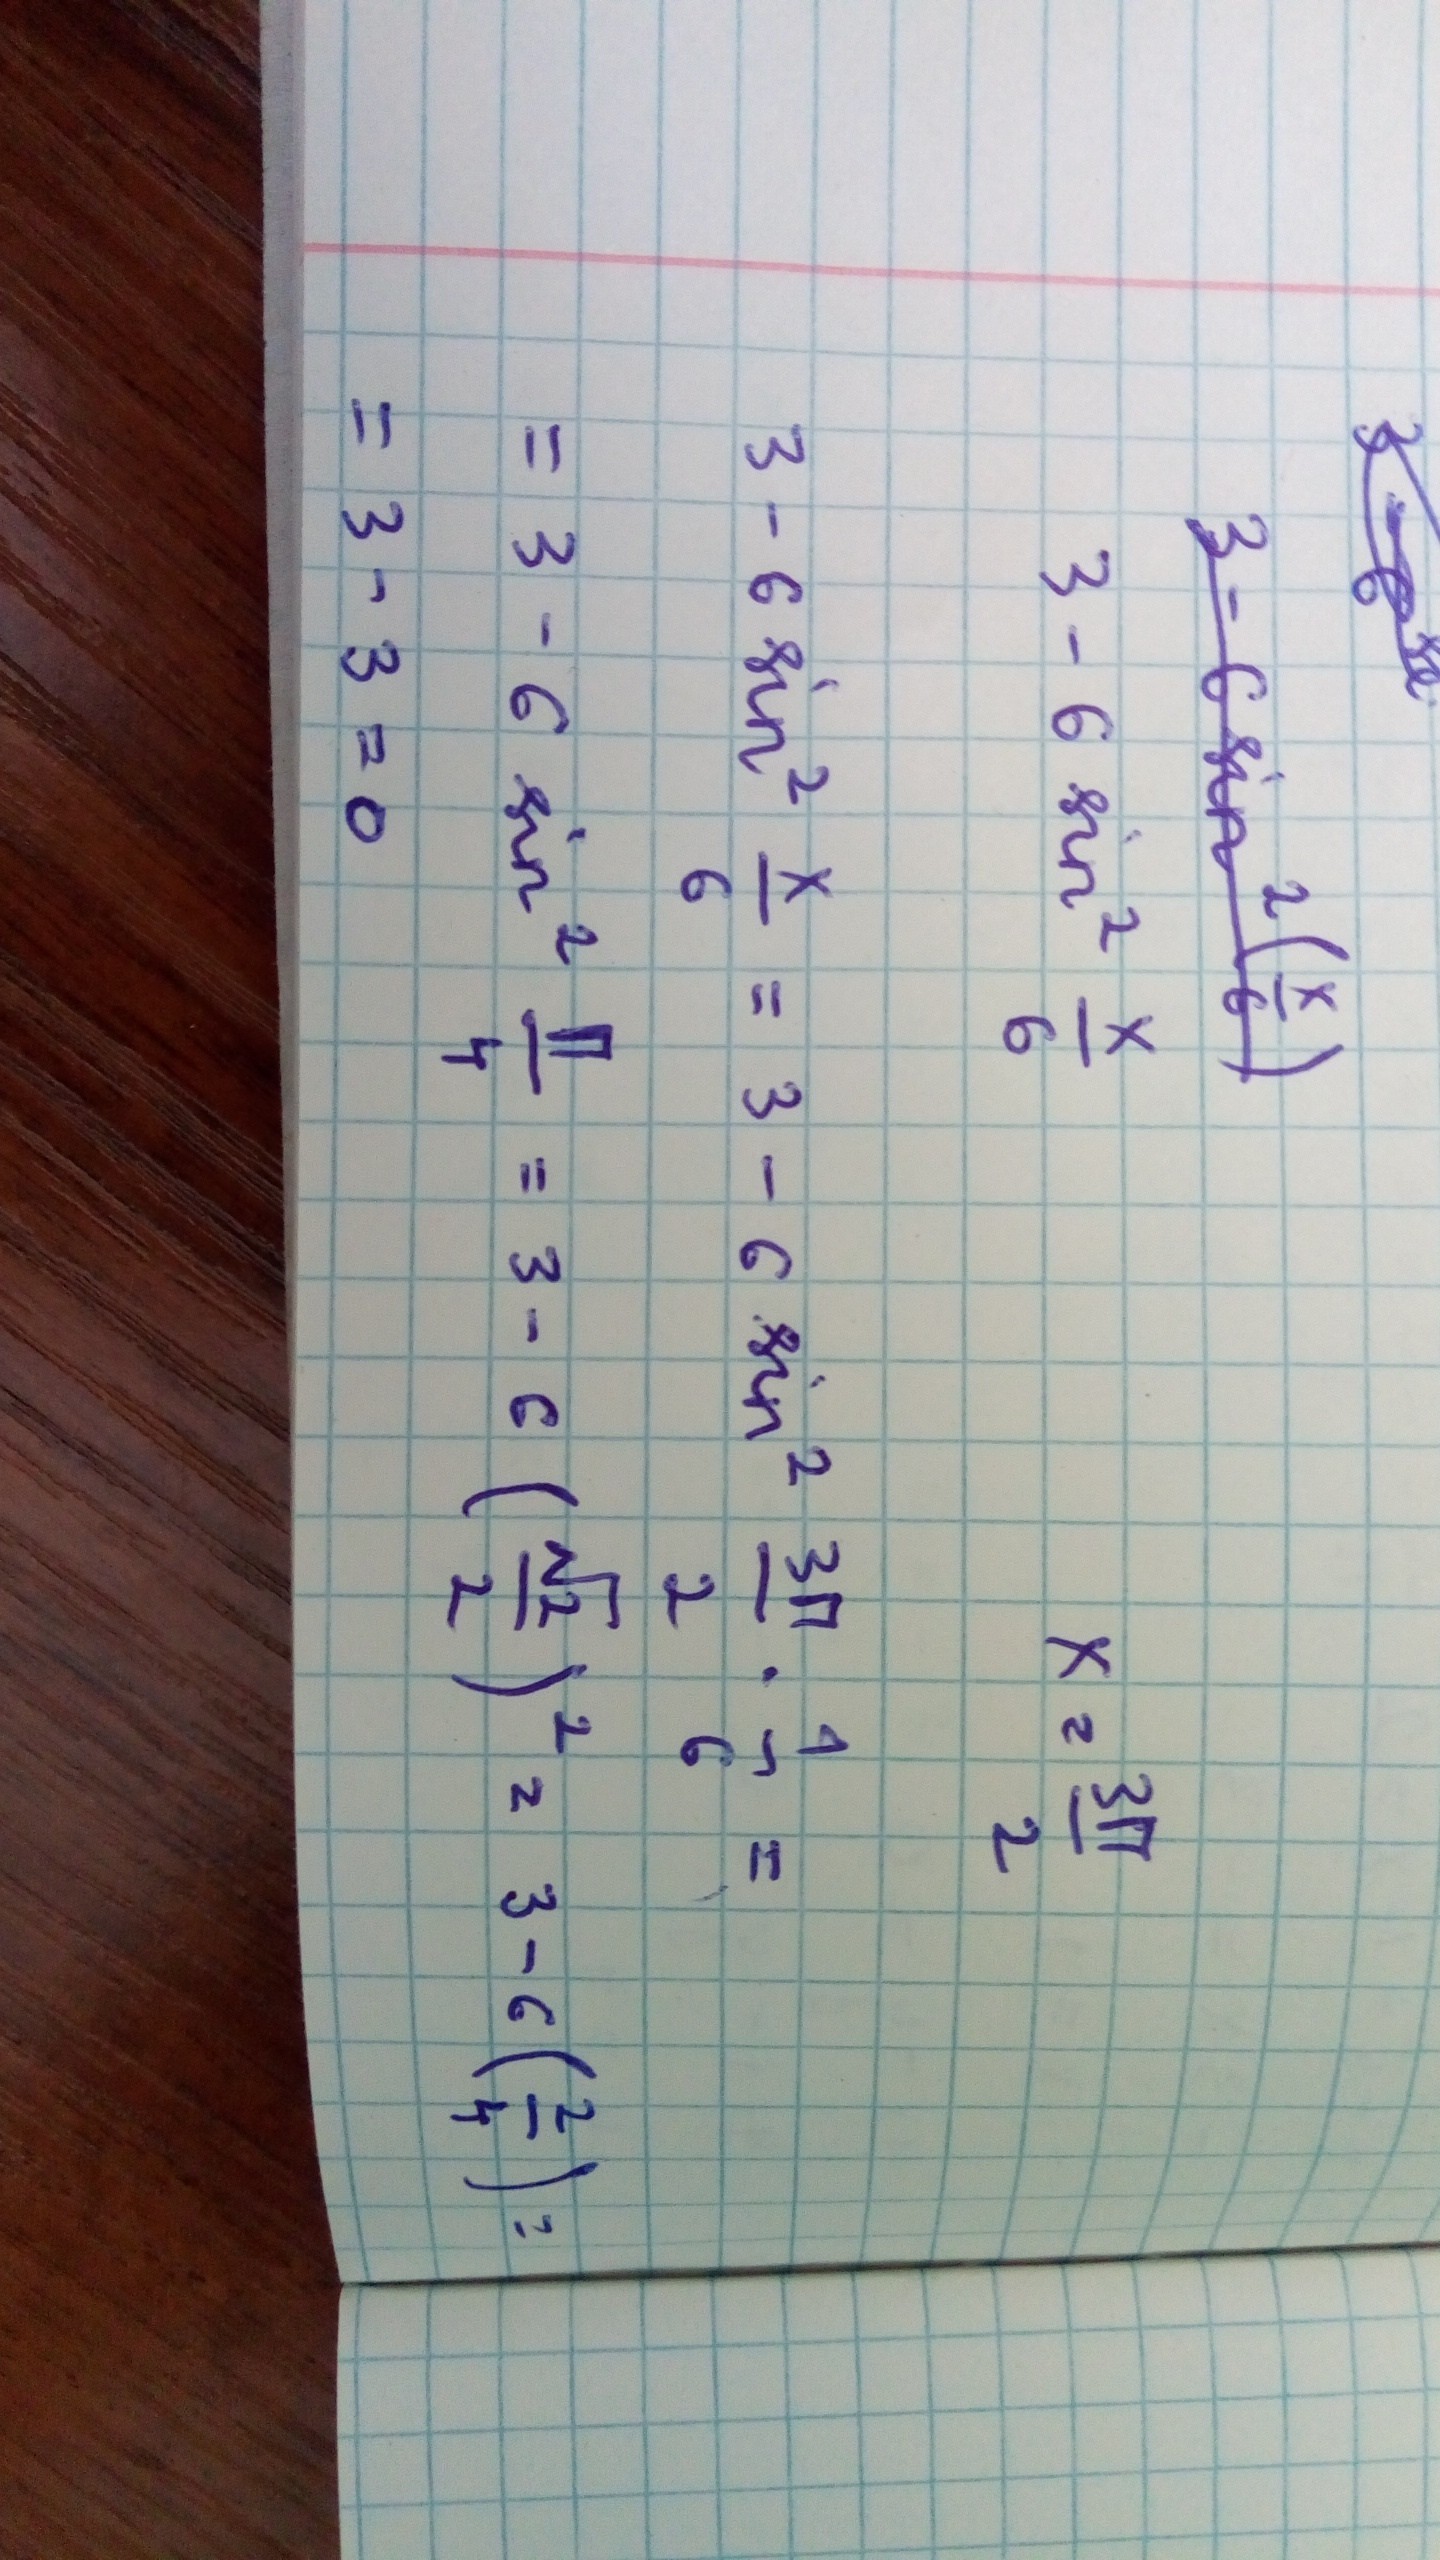 3 - 6 sin² (x/6)
3 - 6 sin² x/6    x = 3π/2
3 - 6 sin² x/6 = 3 - 6 sin² 3π/2 · 1/6 =
= 3 - 6 sin² π/4 = 3 - 6 (√2/2)² = 3 - 6 (2/4) =
= 3 - 3 = 0